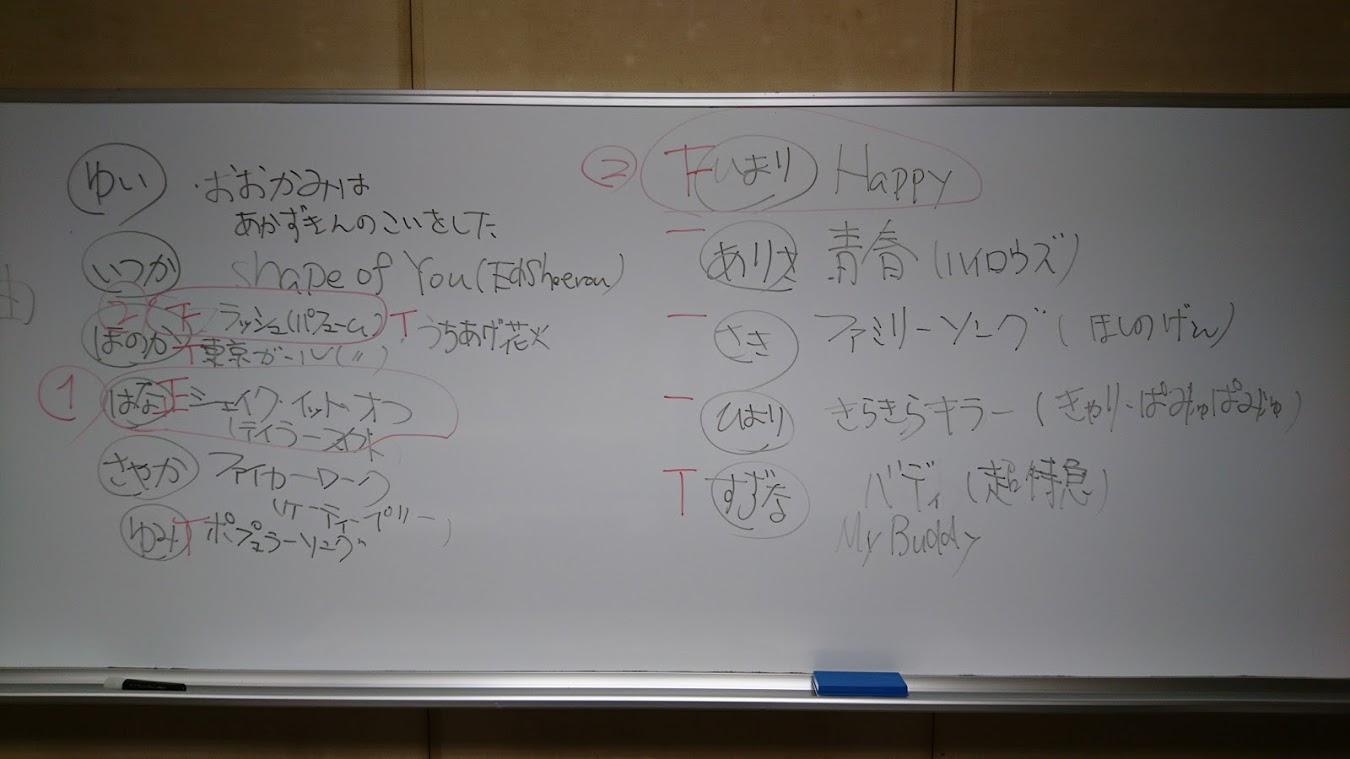 ゆい ・おおかみは
あかずきんのこいをした
いつか Shape of You (EdSheeran)
2 下 ラッシュ(パフューム) T うちあげ花火
ほのか T 東京ガール(〃)
1 はな 下 シェイク・イット・オフ
(テイラー
さやか ファイヤーワーク
(ケーティーペリー)
ゆみ T ポピュラーソング
② 下 ひまり Happy
ありさ 青春(ハイロウズ)
さき ファミリーソング(ほしのげん)
ひまり きらきらキラー(きゃりーぱみゅぱみゅ)
T すずな バディ(超特急)
My Buddy